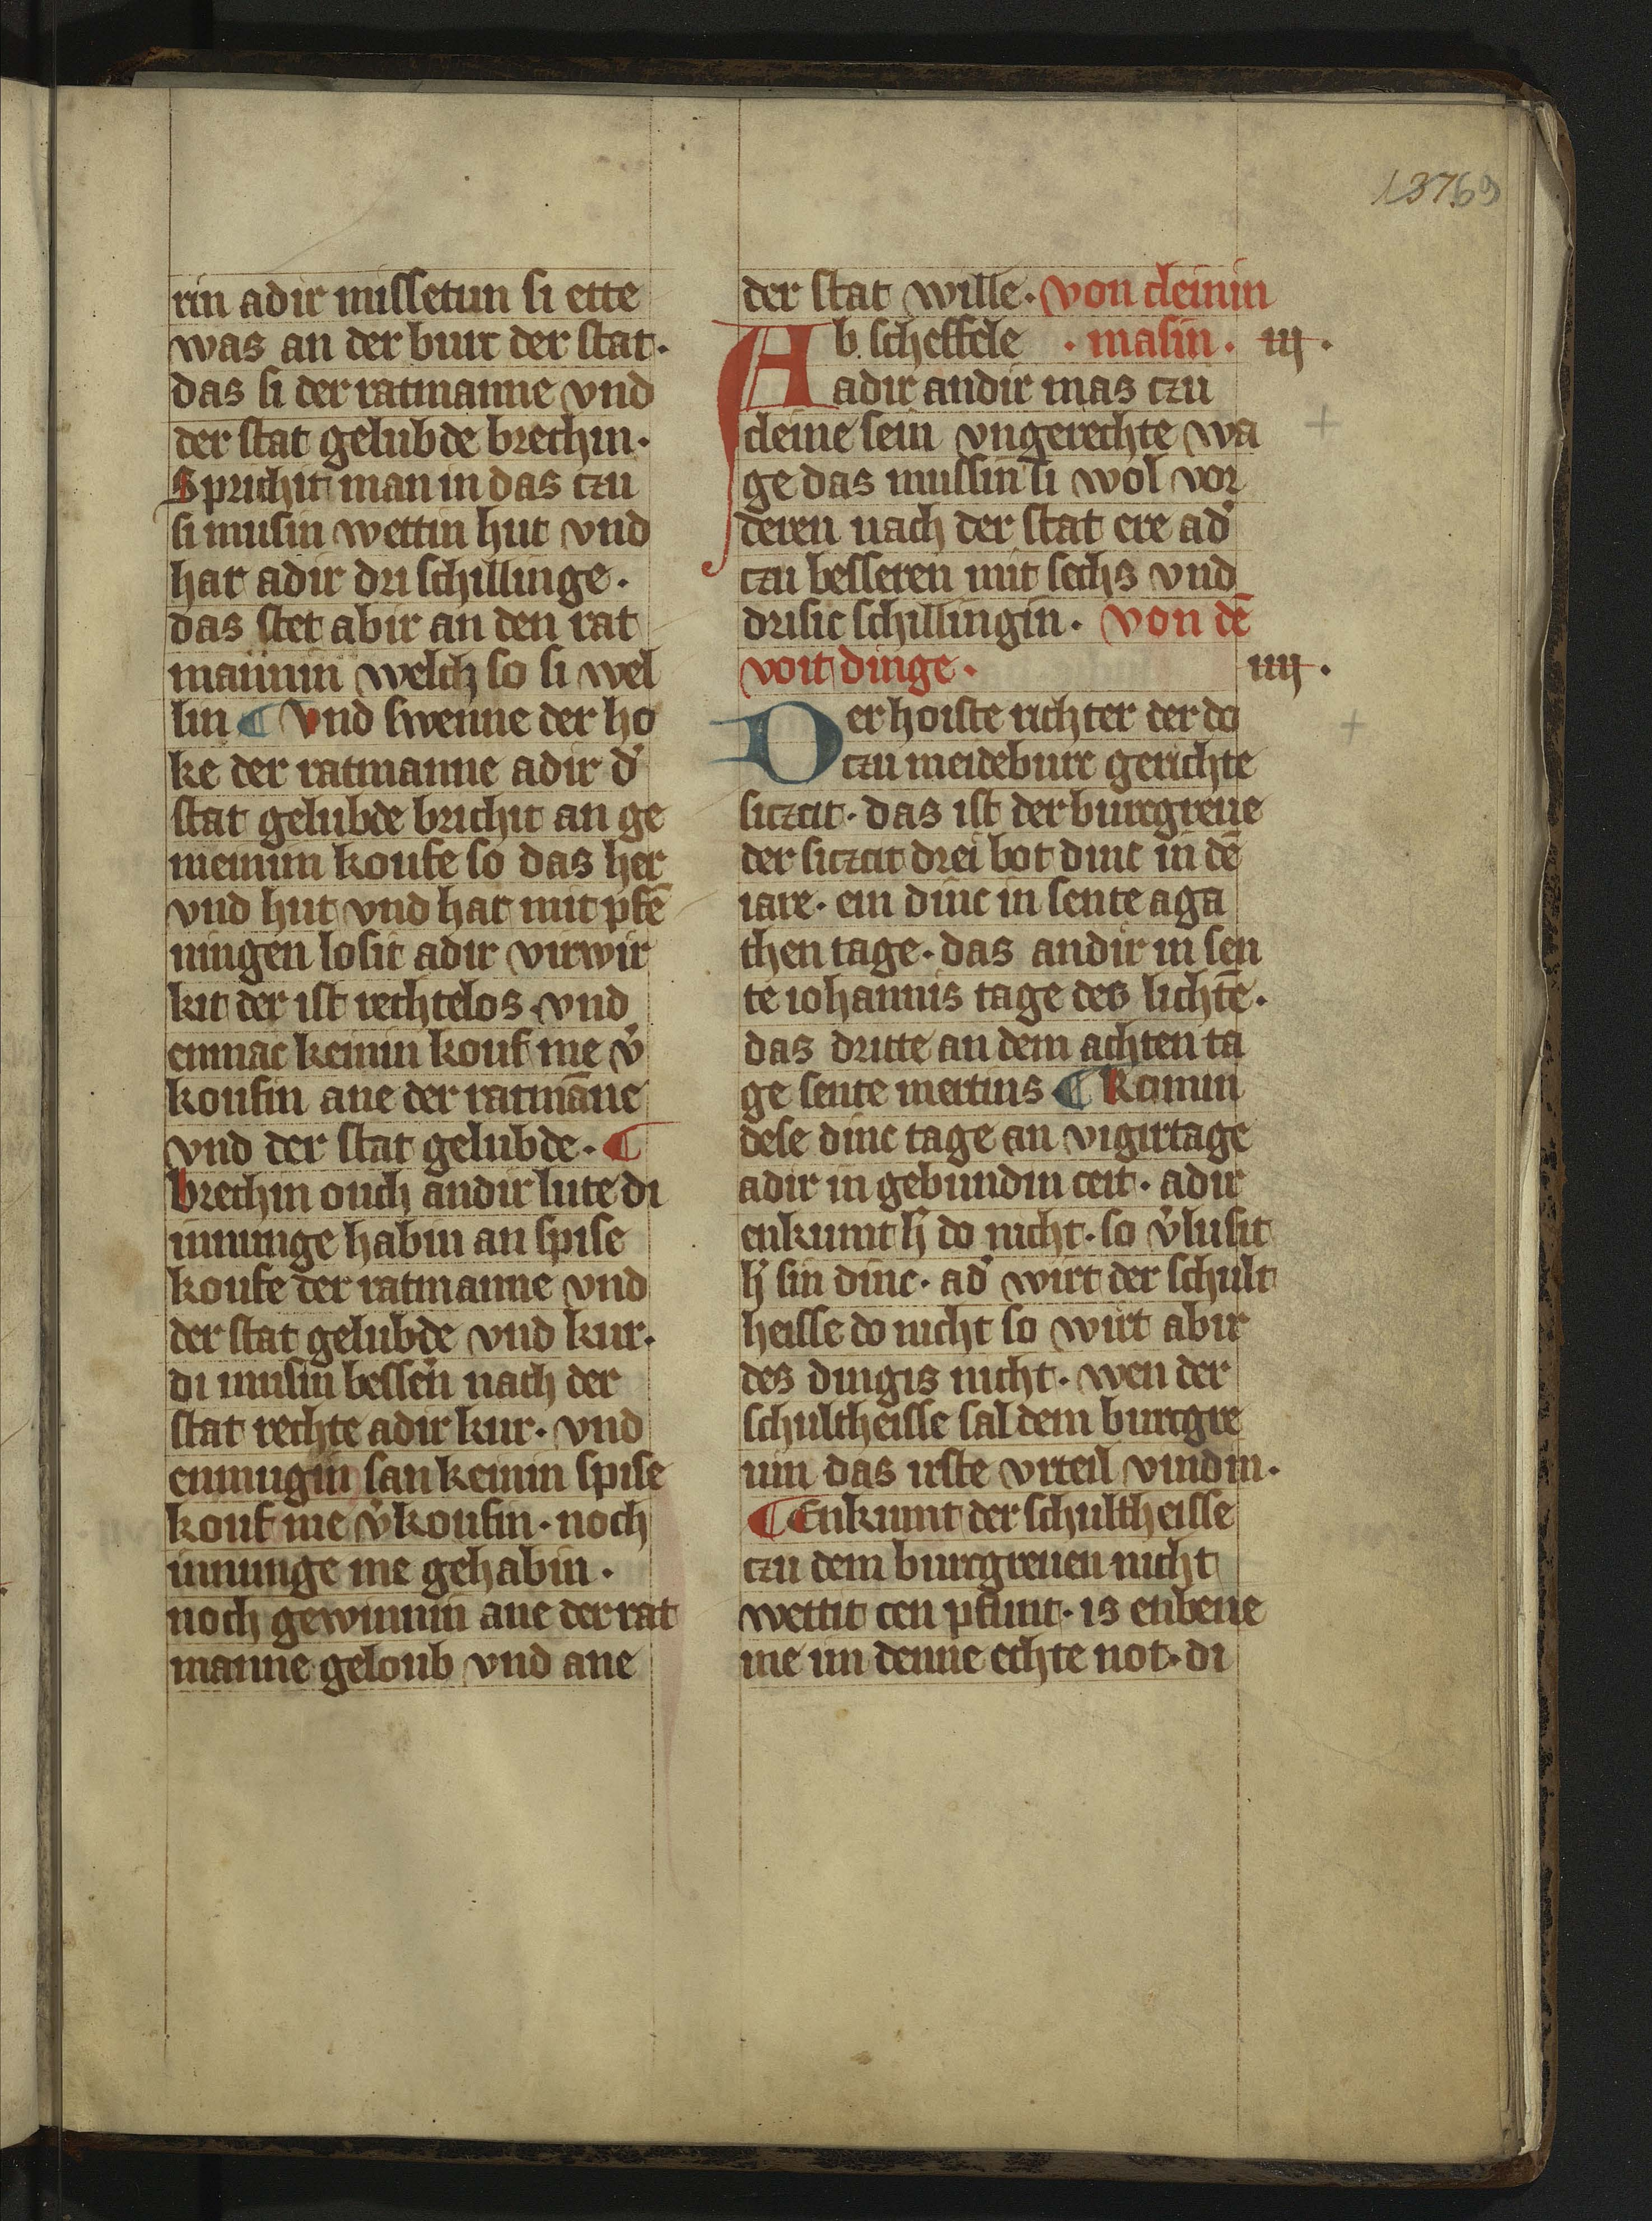 137.69
rin adir missetun si ette
was an der burc der stat.
das si der ratmanne vnd
der stat gelubde brechin.
Sprichit man in das czu
si musin wettin hut vnd
har adir dri schillinge.
das stet abir an den rat
mannin welch so si wel
lin ¶ Vnd swenne der ho
ke der ratmanne adir d̕
stat gelubde brichit an ge
meinim koufe so das her
vnd hut vnd har mit pfē
ningen losit adir virwir
kit der ist rechtelos. vnd
enmac keinin kouf me v̕
koufin ane der ratmāne
vnd der stat gelubde. ¶
brechin ouch andir lute di
innunge habin an spise
koufe der ratmanne vnd
der stat gelubde vnd kur.
di musin bessen̕ nach der
stat rechte adir kur. vnd
enmugin san keinin spise
kouf me v̕koufin. noch
innunge me gehabin.
noch gewinnin ane der rat
manne geloub vnd ane
der stat wille. von cleinin
Ab scheffele . masin. iij.
adir andir mas czu
cleine sein vngerechte wa
ge das mussin si wol vor
deren nach der stat ere ad̕
czu besseren mit sechs vnd
drisic schillingin. von dē
voit dinge. iiij.
Der hoiste richter der do
czu meideburc gerichte
siczcit. das ist der burcgreue
der siczcit drei bot dinc in dē
iare. ein dinc in sente aga
then tage. das andir in sen
te iohannis tage des lichtē.
das dritte an dem achten ta
ge sente mertins ¶ Komin
dese dinc tage an vigirtage
adir in gebundin ceit. adir
enkumt h̕ do nicht. so v̕lusit
h̕ sin dinc. ad̕ wirt der schult
heisse do nicht so wirt abir
des dingis nicht. wen der
schultheisse sal dem burcgre
uin das irste vrteil vindin.
¶ Enkumt der schultheisse
czu dem burcgreuen nicht
wettit cen pfunt. is enbene
me im denne echte not. di